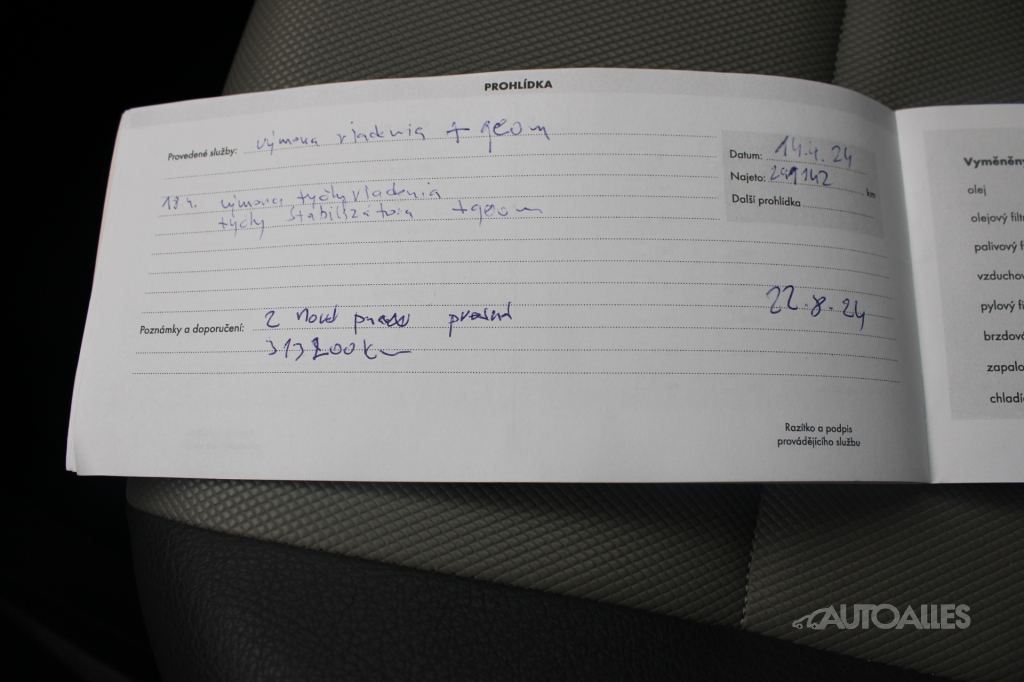 PROHLÍDKA
Provedené služby: výmena riadenia + geom
Datum: 14.4.24
Najeto: 299142 km
Další prohlídka
18 4. výmena tyčky riadenia
tyčky stabilizátora + geom
Poznámky a doporučení: 2 nové
22.8.24
313200k
Razítko a podpis
provádějícího službu
Vyměněn
olej
olejový filt
palivový f
vzduchov
pylový fi
brzdov
zapalo
chladí
AUTOALLES